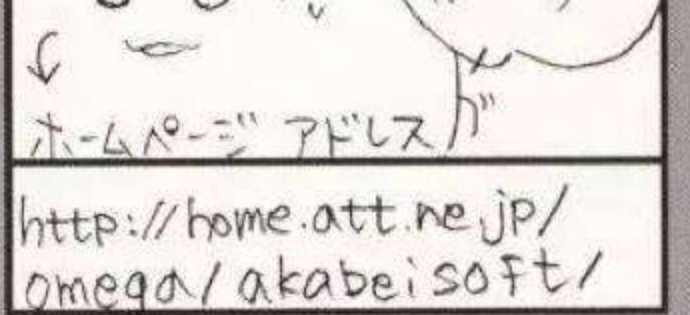 ホームページ アドレスが
http://home.att.ne.jp/
omega/akabeisoft/